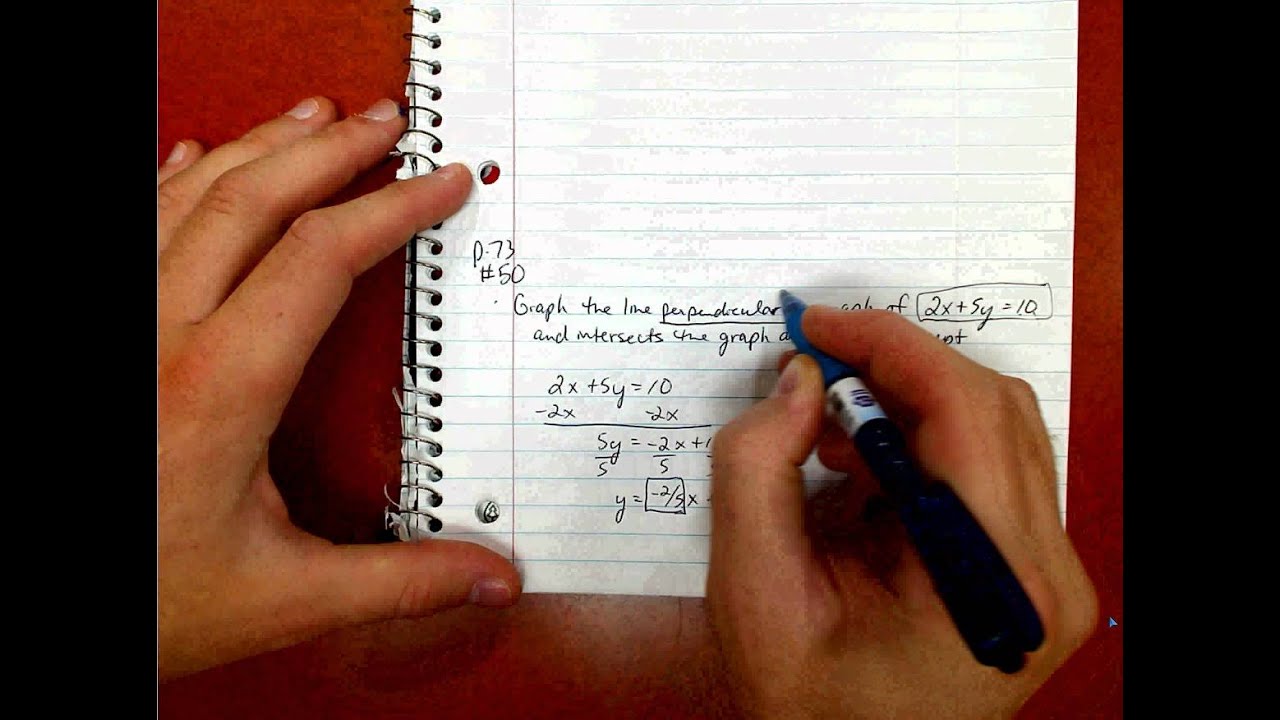 p.73
#50
Graph the line perpendicular graph of 2x+5y=10
and intersects the graph
2x+5y=10
-2x -2x
5y = -2x+
5 5
y = -2/5x